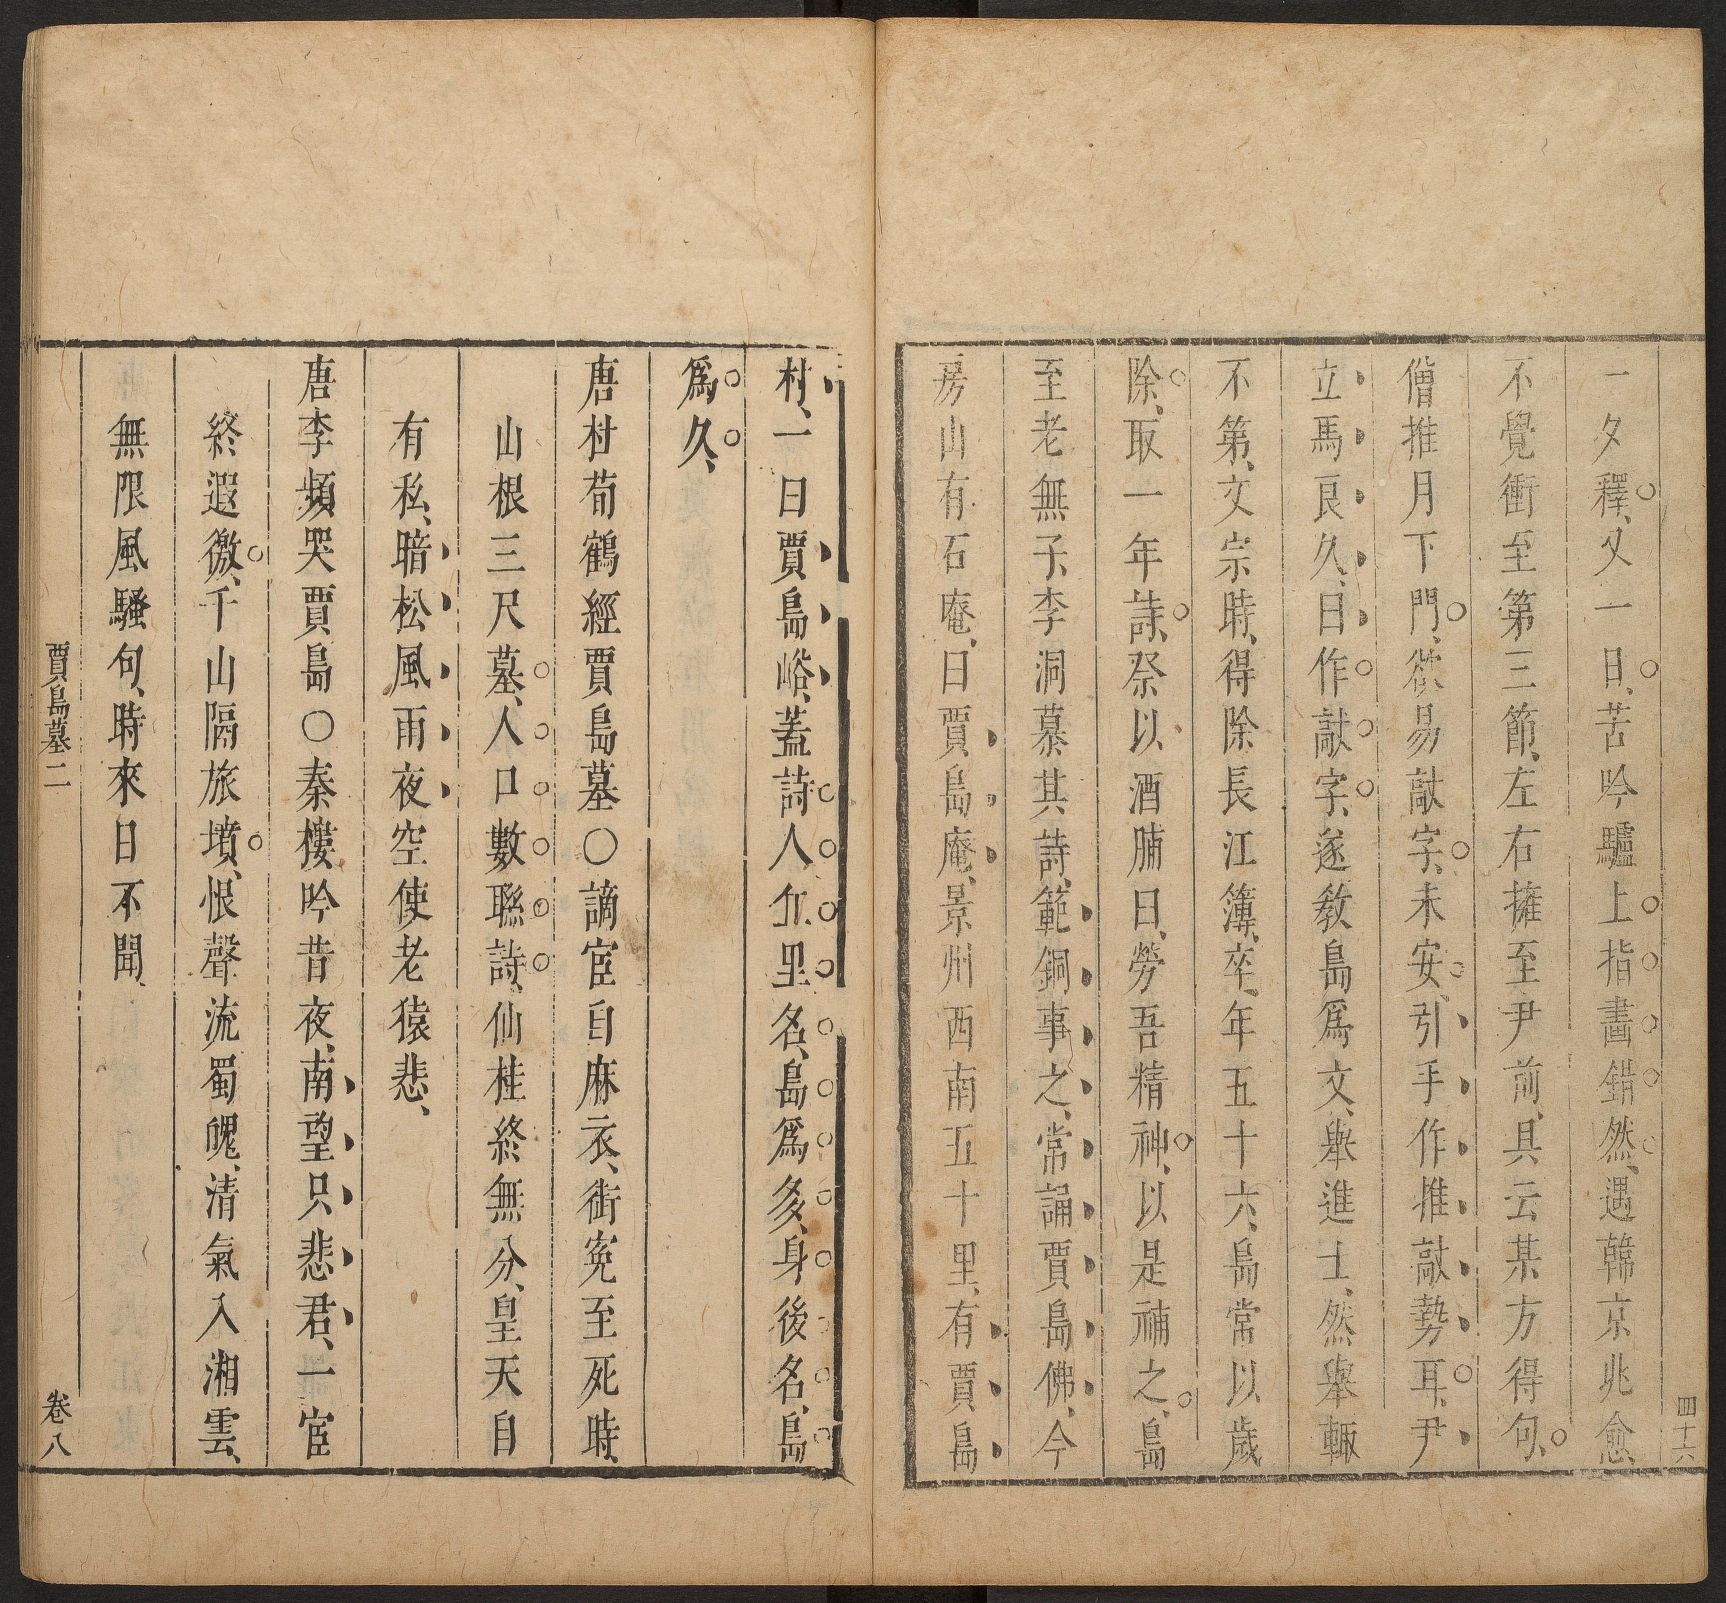 四十六
一夕釋、又一日、苦吟驢上指畫錯然、遇韓京兆愈、
不覺衝至第三節、左右擁至尹前、具云某方得句、
僧推月下門、欲易敲字、未安、引手作推敲勢耳、尹
立馬良久、曰作敲字、遂敎島爲文、舉進士、然舉輒
不第、文宗時、得除長江簿、卒、年五十六、島常以歲
除、取一年詩、祭以酒脯曰、勞吾精神、以是補之、島
至老無子、李洞慕其詩、範銅事之、常誦賈島佛、今
房山有石庵、曰賈島庵、景州西南五十里、有賈島
村、一曰賈島峪、蓋詩人丘里名、島爲多、身後名、島
爲久、
唐杜荀鶴經賈島墓○謫宦自麻衣、銜寃至死時、
山根三尺墓、人口數聯詩、仙桂終無分、皇天自
有私、暗松風雨夜、空使老猿悲、
唐李頻哭賈島○秦樓吟昔夜、南望只悲君、一宦
終遐徼、千山隔旅墳、恨聲流蜀魄、清氣入湘雲、
無限風騷句、時來日不聞、
賈島墓二
卷八